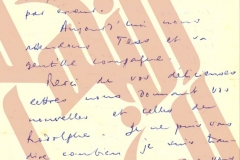 par erreur.
Aujourd'hui nous
attendons Tess et sa
gentille compagne.
Merci de vos délicieuses
lettres nous donnant vos
nouvelles et celles de
Rodolphe. Je ne puis vous
dire combien je vous